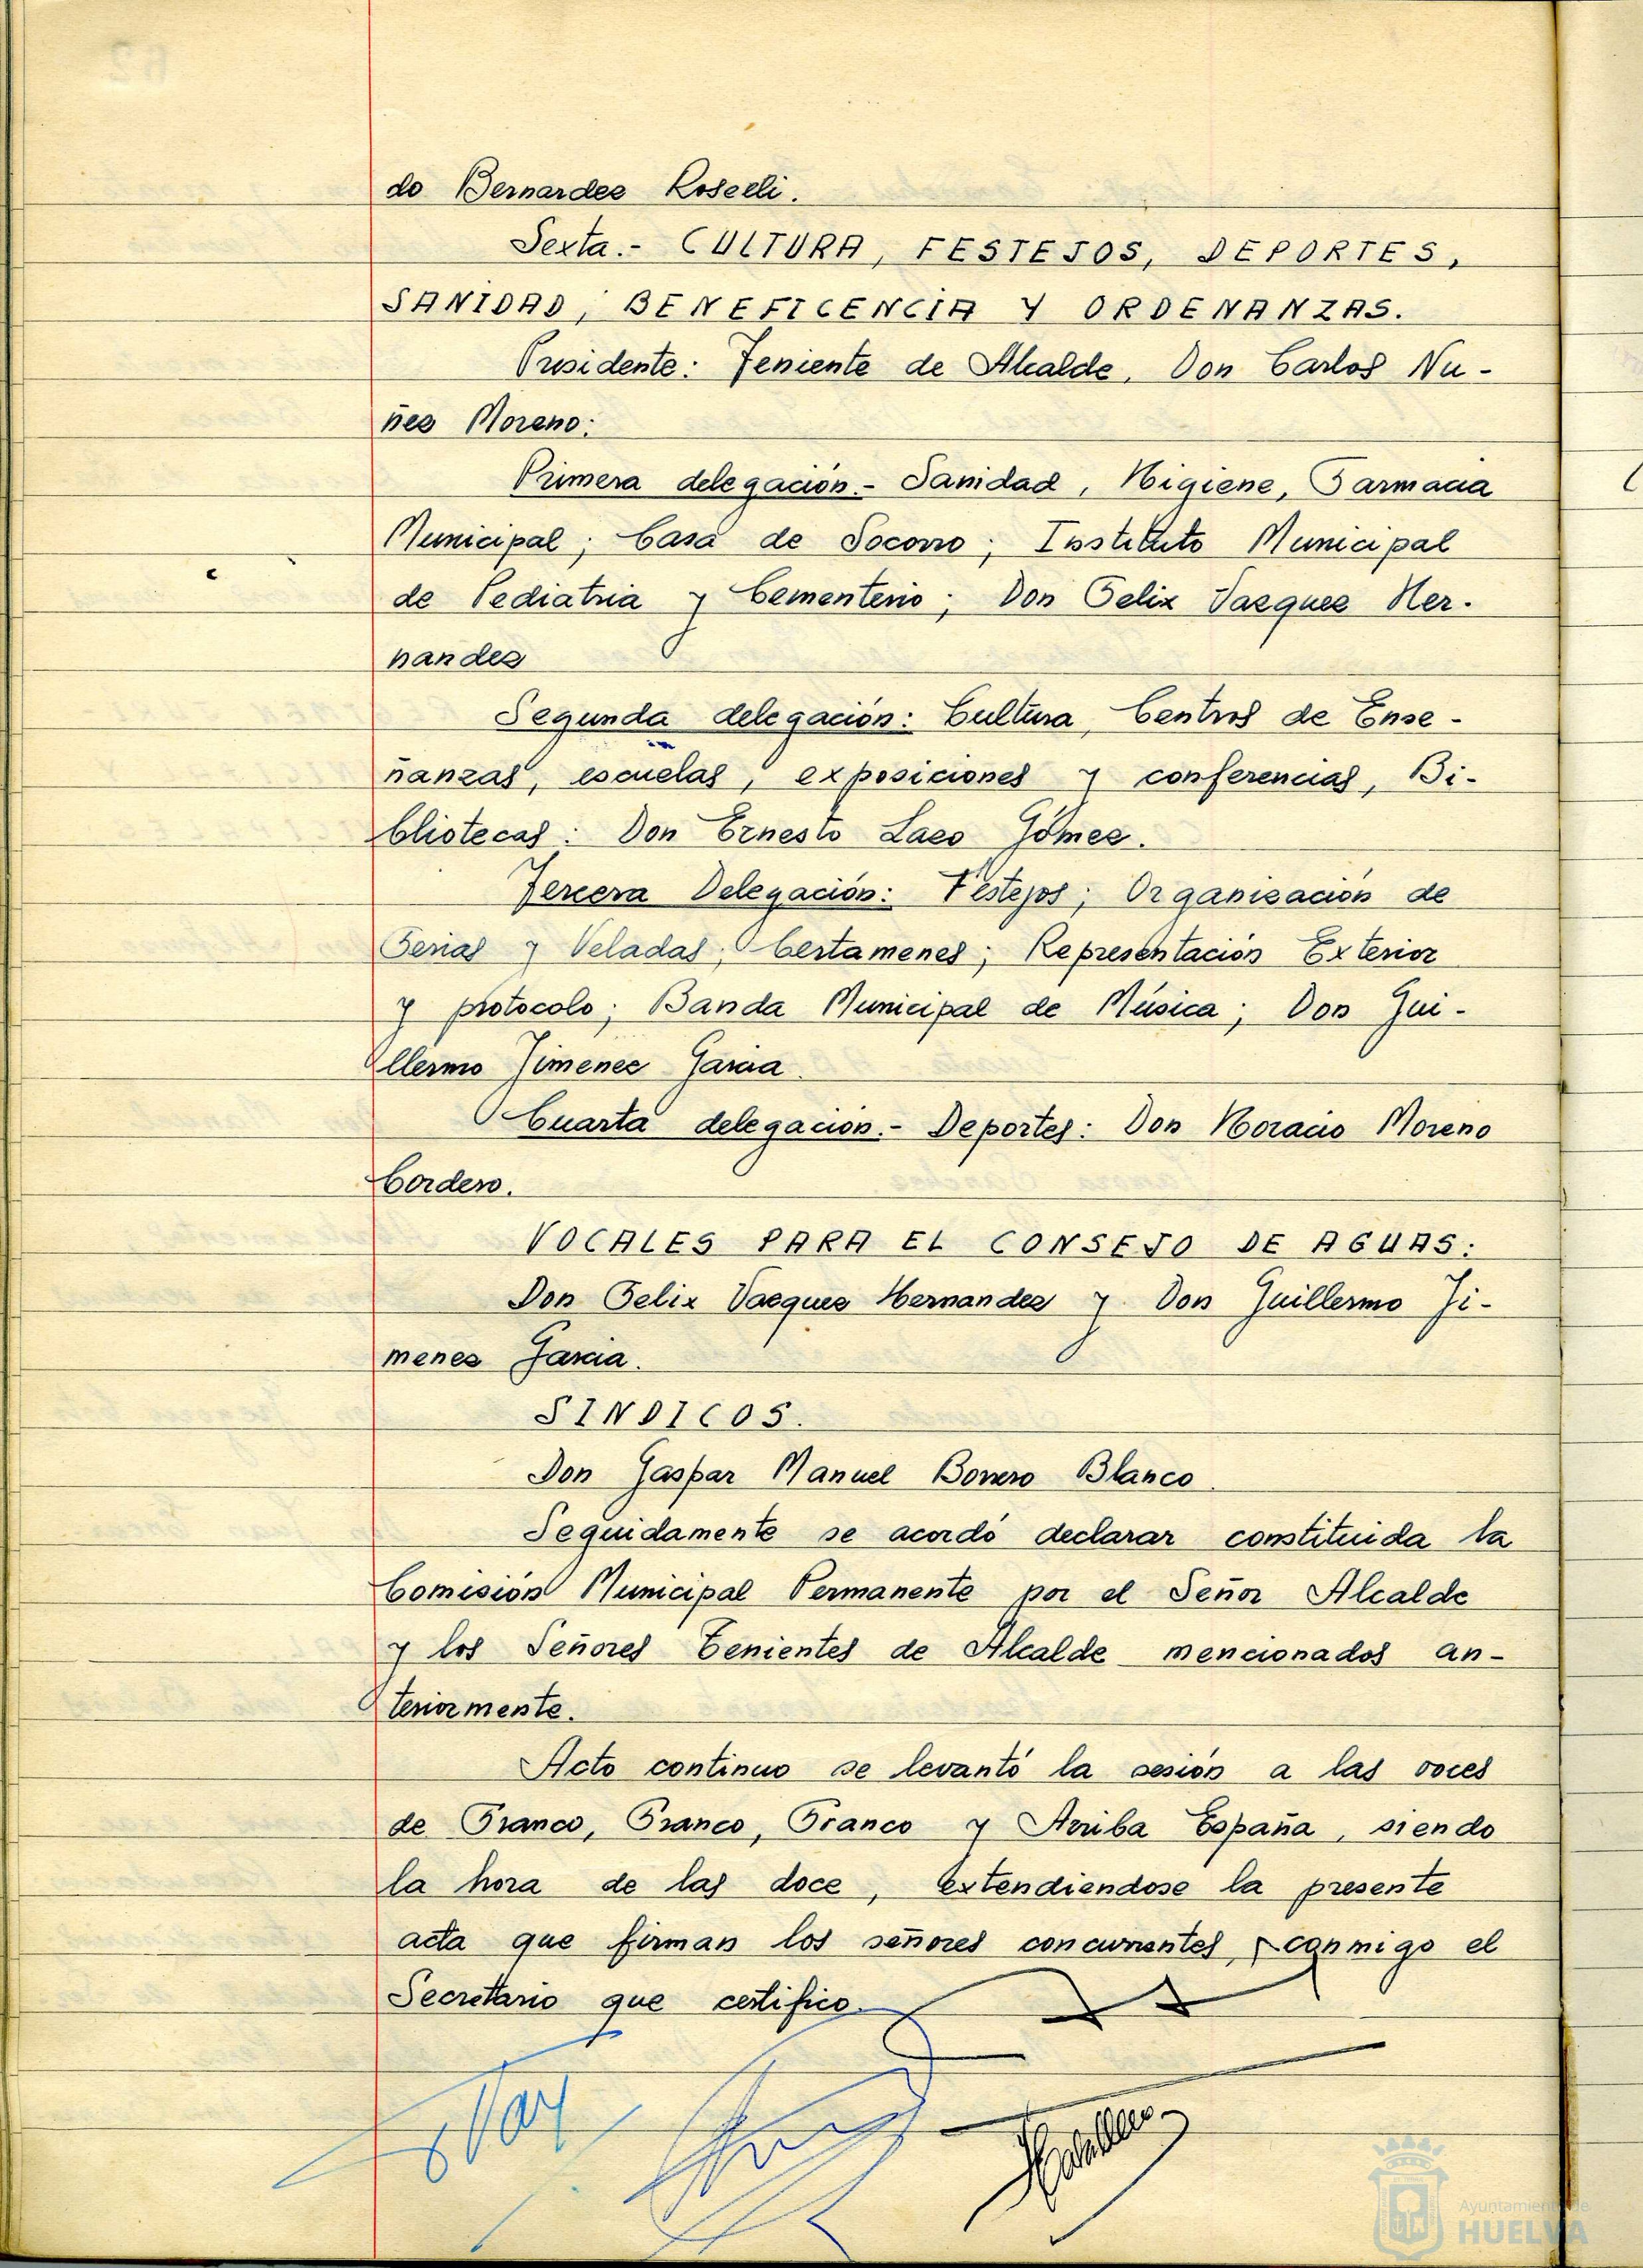 do Bernardez Roselli.
Sexta.- CULTURA, FESTEJOS, DEPORTES,
SANIDAD, BENEFICENCIA Y ORDENANZAS.
Presidente: Teniente de Alcalde, Don Carlos Nu-
ñez Moreno:
Primera delegación.- Sanidad, Higiene, Farmacia
Municipal; Casa de Socorro; Instituto Municipal
de Pediatria y Cementerio; Don Felix Vazquez Her-
nandez
Segunda delegación: Cultura, Centros de Ense-
ñanzas, escuelas, exposiciones y conferencias, Bi-
bliotecas: Don Ernesto Lazo Gómez.
Tercera Delegación: Festejos; Organización de
Ferias y Veladas; Certamenes; Representación Exterior
y protocolo; Banda Municipal de Música; Don Gui-
llermo Jimenez Garcia
Cuarta delegación.- Deportes: Don Horacio Moreno
Cordero.
VOCALES PARA EL CONSEJO DE AGUAS:
Don Felix Vazquez Hernandez y Don Guillermo Ji-
menez Garcia.
SINDICOS.
Don Gaspar Manuel Borrero Blanco.
Seguidamente se acordó declarar constituida la
Comisión Municipal Permanente por el Señor Alcalde
y los Señores Tenientes de Alcalde mencionados an-
teriormente.
Acto continuo se levantó la sesión a las voces
de Franco, Franco, Franco y Arriba España, siendo
la hora de las doce, extendiendose la presente
acta que firman los señores concurrentes, conmigo el
Secretario que certifico.
Ayuntamiento de
HUELVA